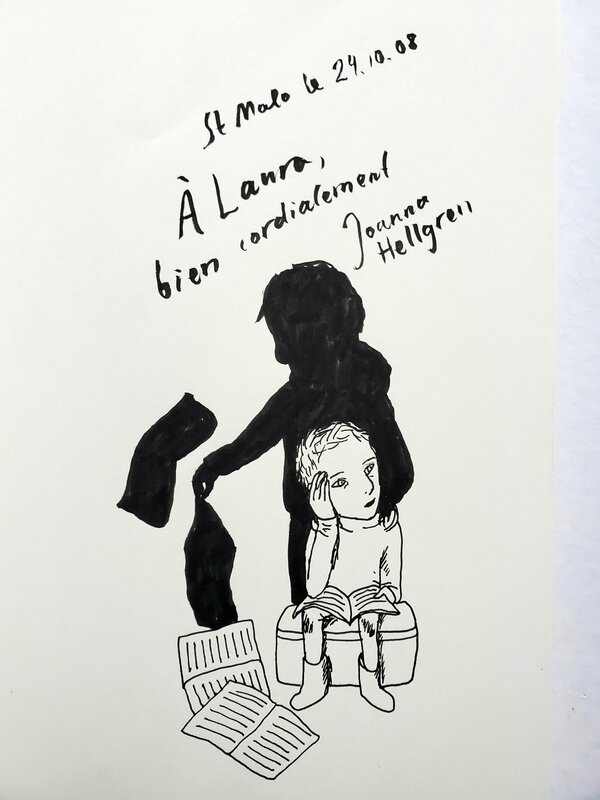 St Malo le 24.10.08
À Laura,
bien cordialement
Joanna
Hellgren